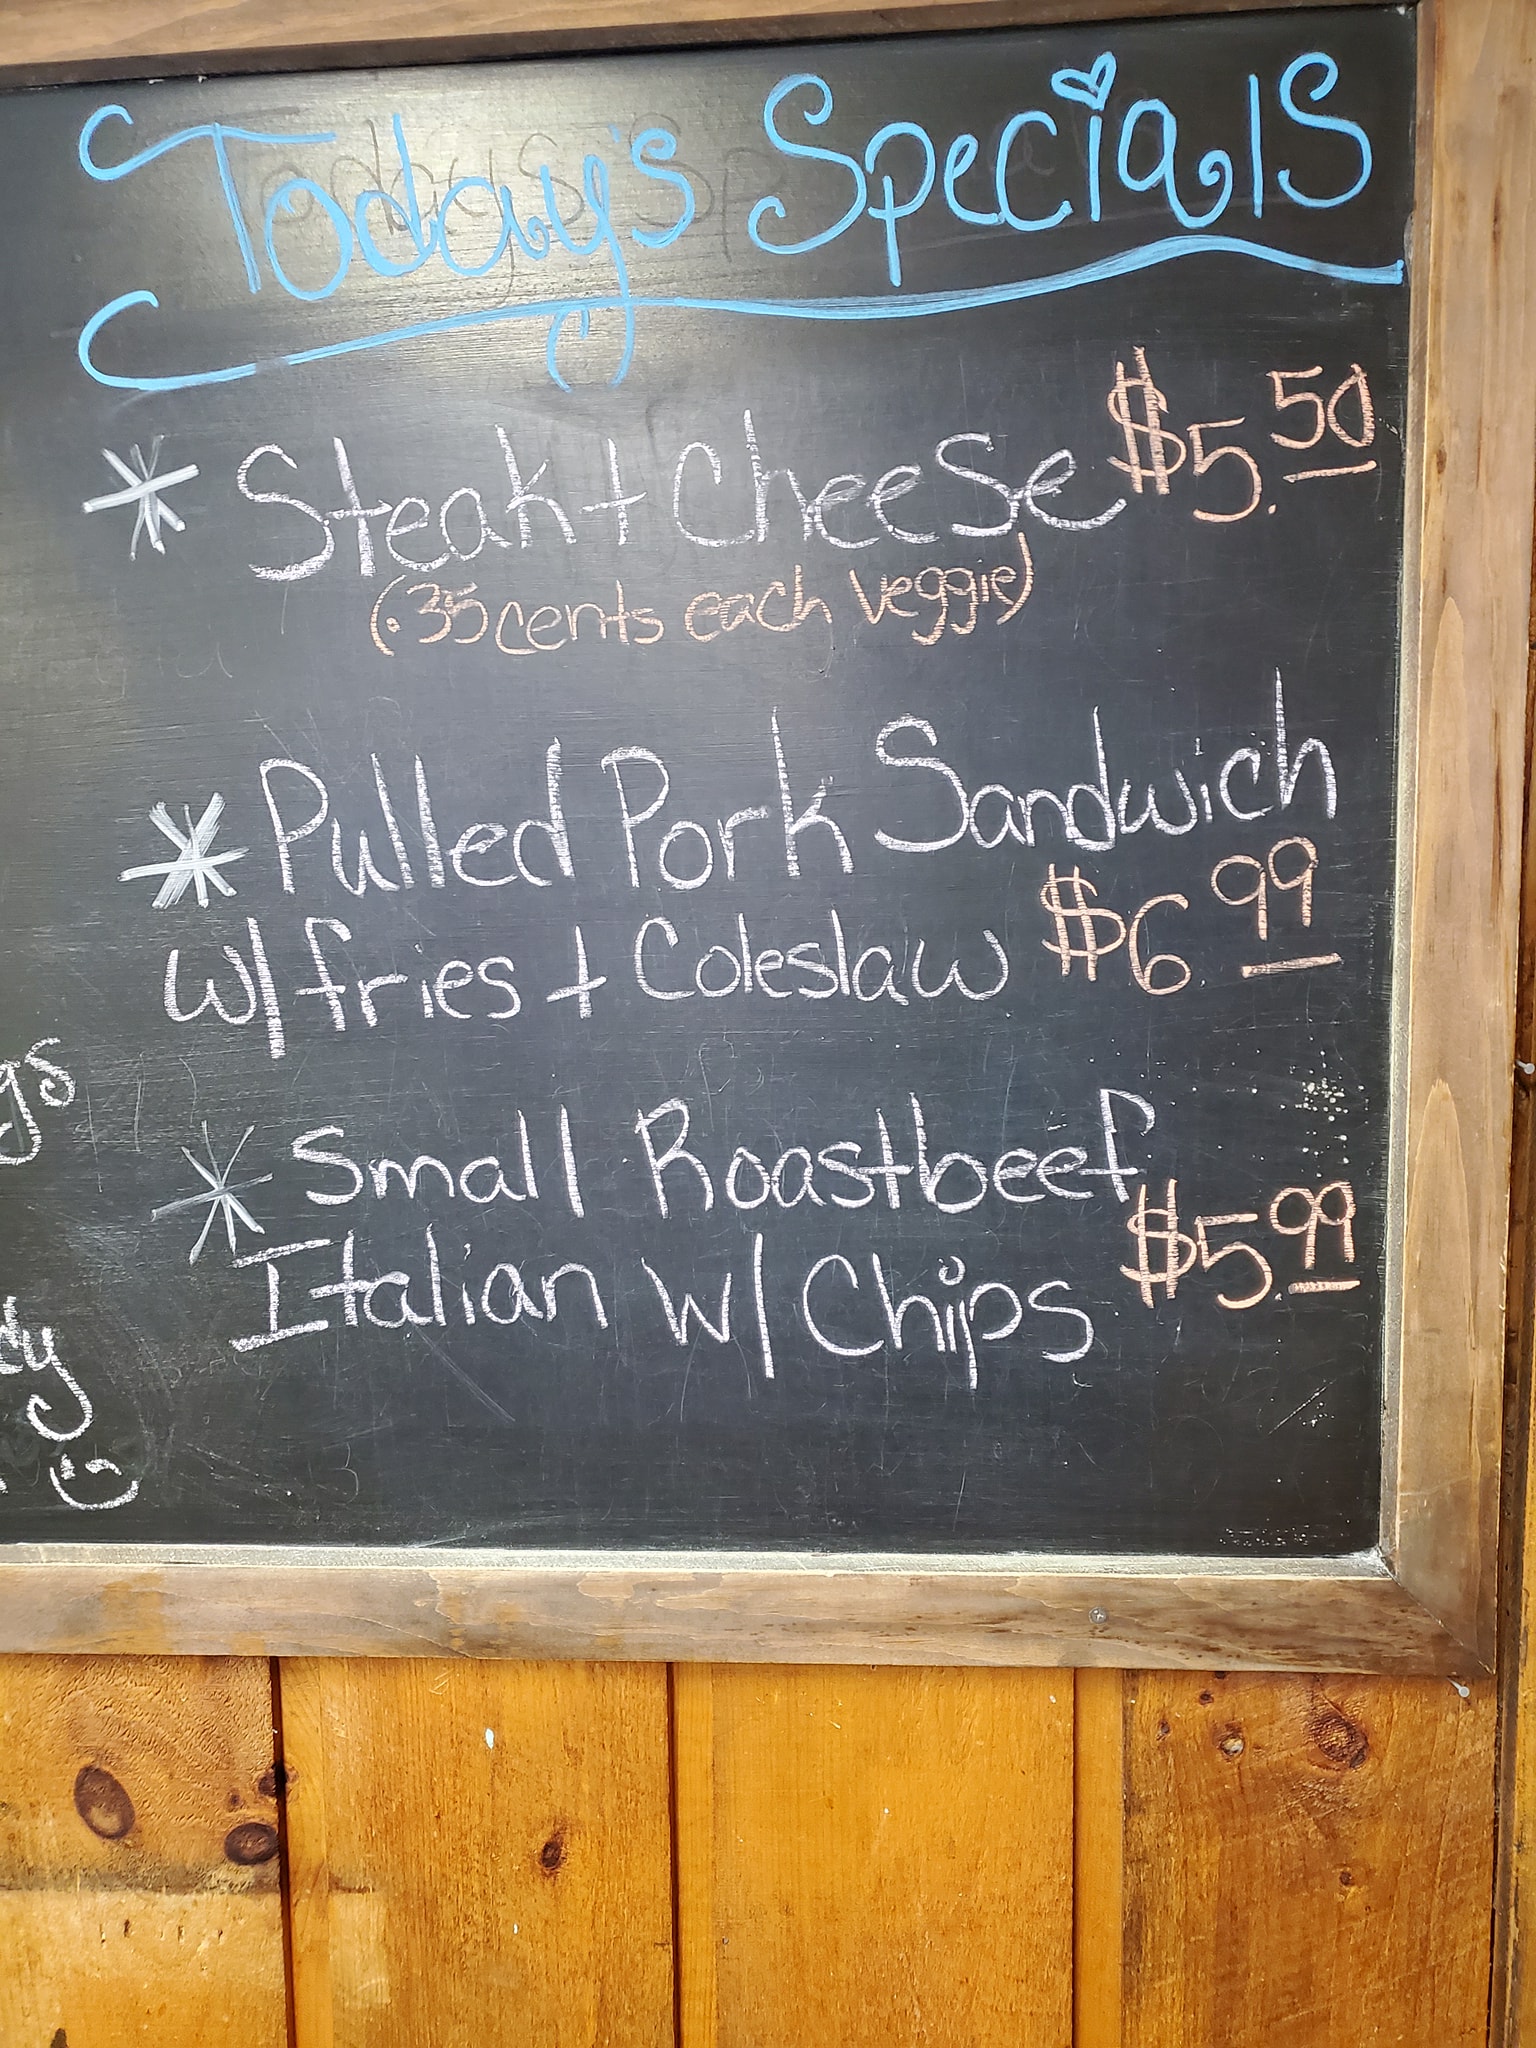 Today's Specials
* Steak + Cheese $5.50
(.35 cents each veggie)
* Pulled Pork Sandwich
w/ fries + Coleslaw $6.99
* Small Roastbeef
Italian w/ Chips $5.99